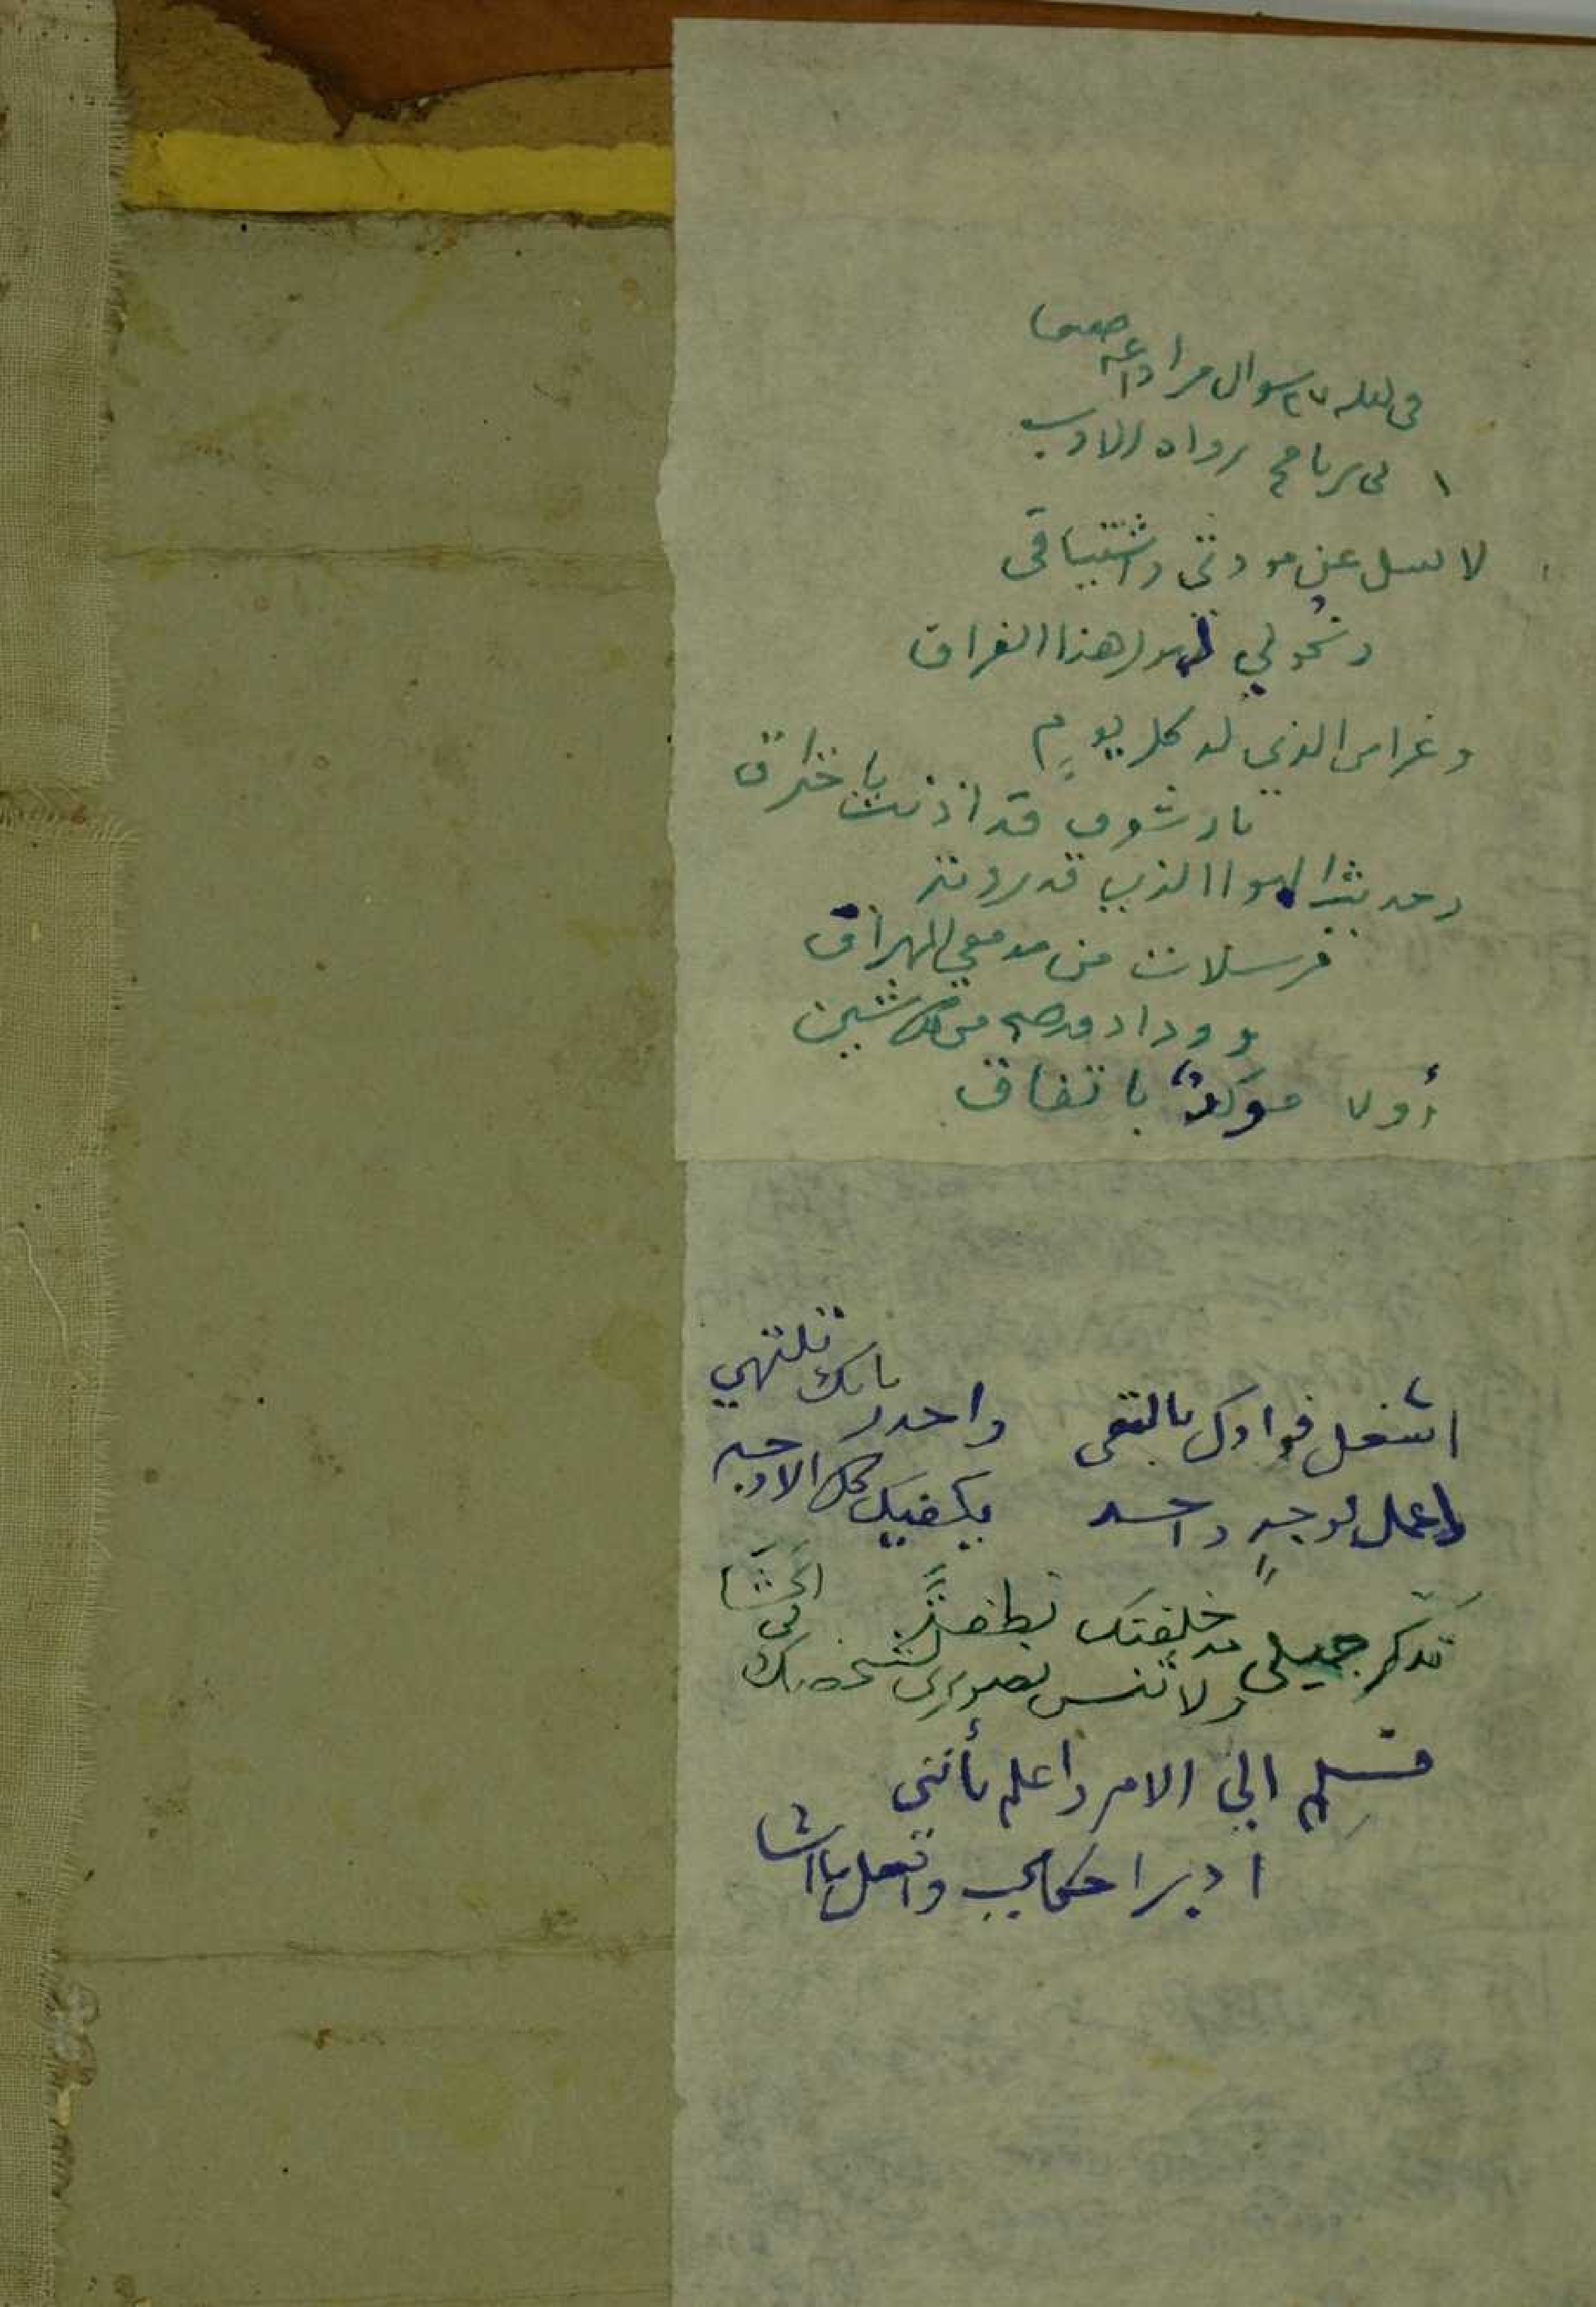 في ليله ٢٧ شوال من اذاعة صنعا
١ في برنامج رواه الادب
لا تسل عن مودتي واشتياقي
ونحولي لهول هذا الفراق
وغرامي الذي له كل يومٍ
نار شوق قد اذنت باختراق
وحديث الهوا الذي قد روته
مرسلات من مدمعي المهراق
ووداد قد صح من
أولا مؤكدٌ باتفاق
اشغل فوادك بالتقى واحذر بانك تلتهي
واعمل لوجهٍ واحد يكفيك كل الاوجه
تذكر جميلي مذ خلقتك نطفةً
ولا تنس تصويري لشخصك في الحشا
فسلم الي الامر واعلم بأنني
ادبر احكامي وافعل ما اشا